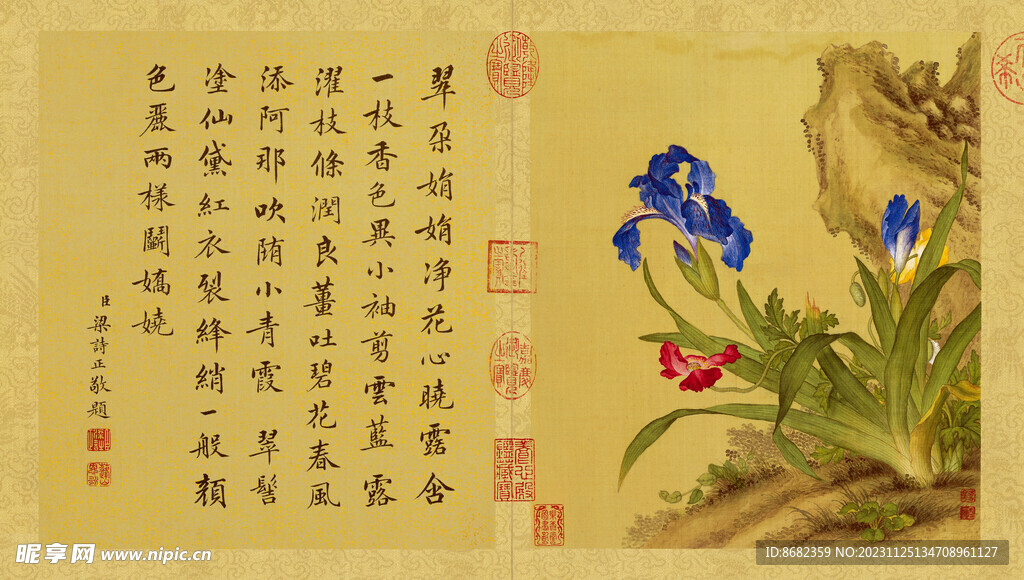 翠朵娟娟净花心曉露含
一枝香色異小袖剪雲藍 露
濯枝條潤良薑吐碧花春風
添阿那吹隋小青霞 翠髻
塗仙黛紅衣裂絳綃一般顏
色麗兩樣鬭嬌嬈
臣梁詩正敬題
乾隆御覽之寶
嘉慶御覽之寶
昵享网 www.nipic.cn
ID:8682359 NO:20231125134708961127